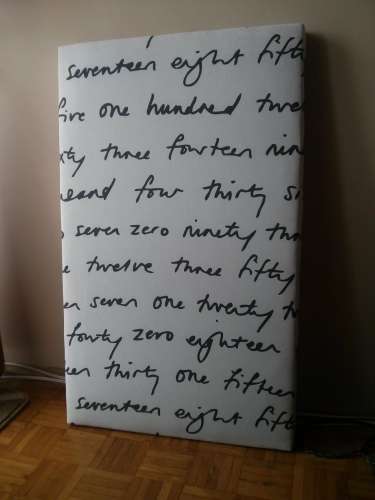 seventeen eight fift
five one hundred twe
xty three fourteen nin
sand four thirty si
seven zero ninety thr
e twelve three fifty
en seven one twenty t
fourty zero eighteen
een thirty one fifteen
seventeen eight fift